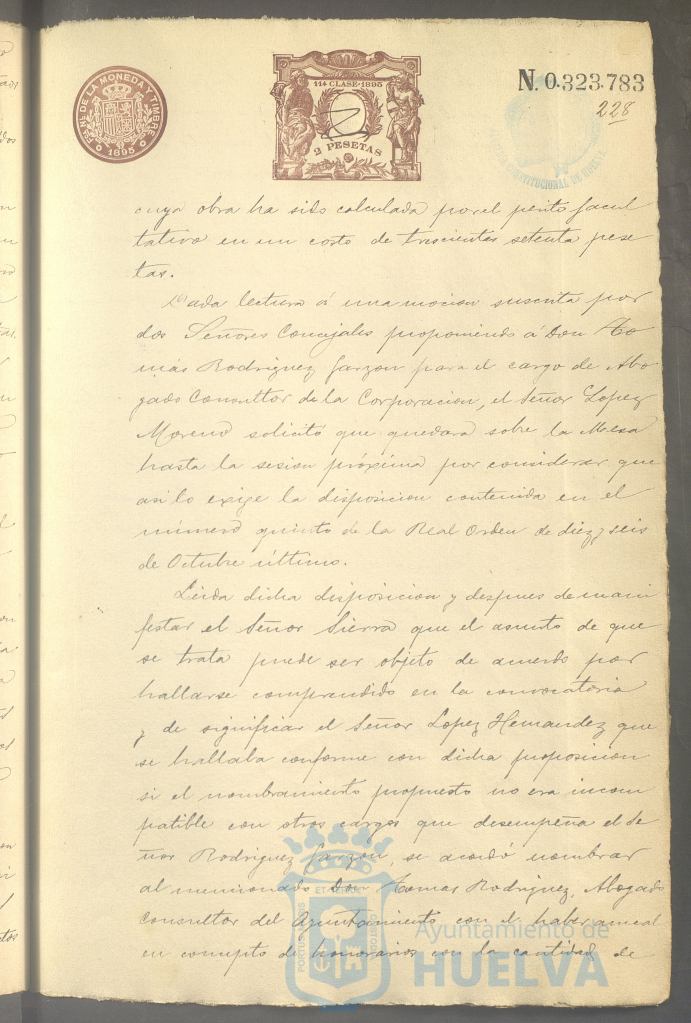 FCA. NL. DE LA MONEDA Y TIMBRE
1895
11ª CLASE-1895
2 PESETAS
N. 0.323.783
228
CONSTITUCIONAL DE HUELVA
cuya obra ha sido calculada por el perito facul
tativo en un costo de trescientas setenta pese
tas.
Dada lectura á una mocion suscrita por
dos Señores Concejales proponiendo á Don To
más Rodriguez Garzon para el cargo de Abo
gado Consultor de la Corporacion, el Señor Lopez
Moreno solicitó que quedara sobre la Mesa
hasta la sesion próxima por considerar que
asi lo exige la disposicion contenida en el
número quinto de la Real Orden de diez y seis
de Octubre último.
Leida dicha disposicion y despues de mani
festar el Señor Sierra que el asunto de que
se trata puede ser objeto de acuerdo por
hallarse comprendido en la convocatoria
y de significar el Señor Lopez Hernandez que
se hallaba conforme con dicha proposicion
si el nombramiento propuesto no era incom
patible con otros cargos que desempeña el Se
ñor Rodriguez Garzon, se acordó nombrar
al mencionado Don Tomas Rodriguez, Abogado
Consultor del Ayuntamiento con el haber anual
en concepto de honorarios con la cantidad de
Ayuntamiento de
HUELVA